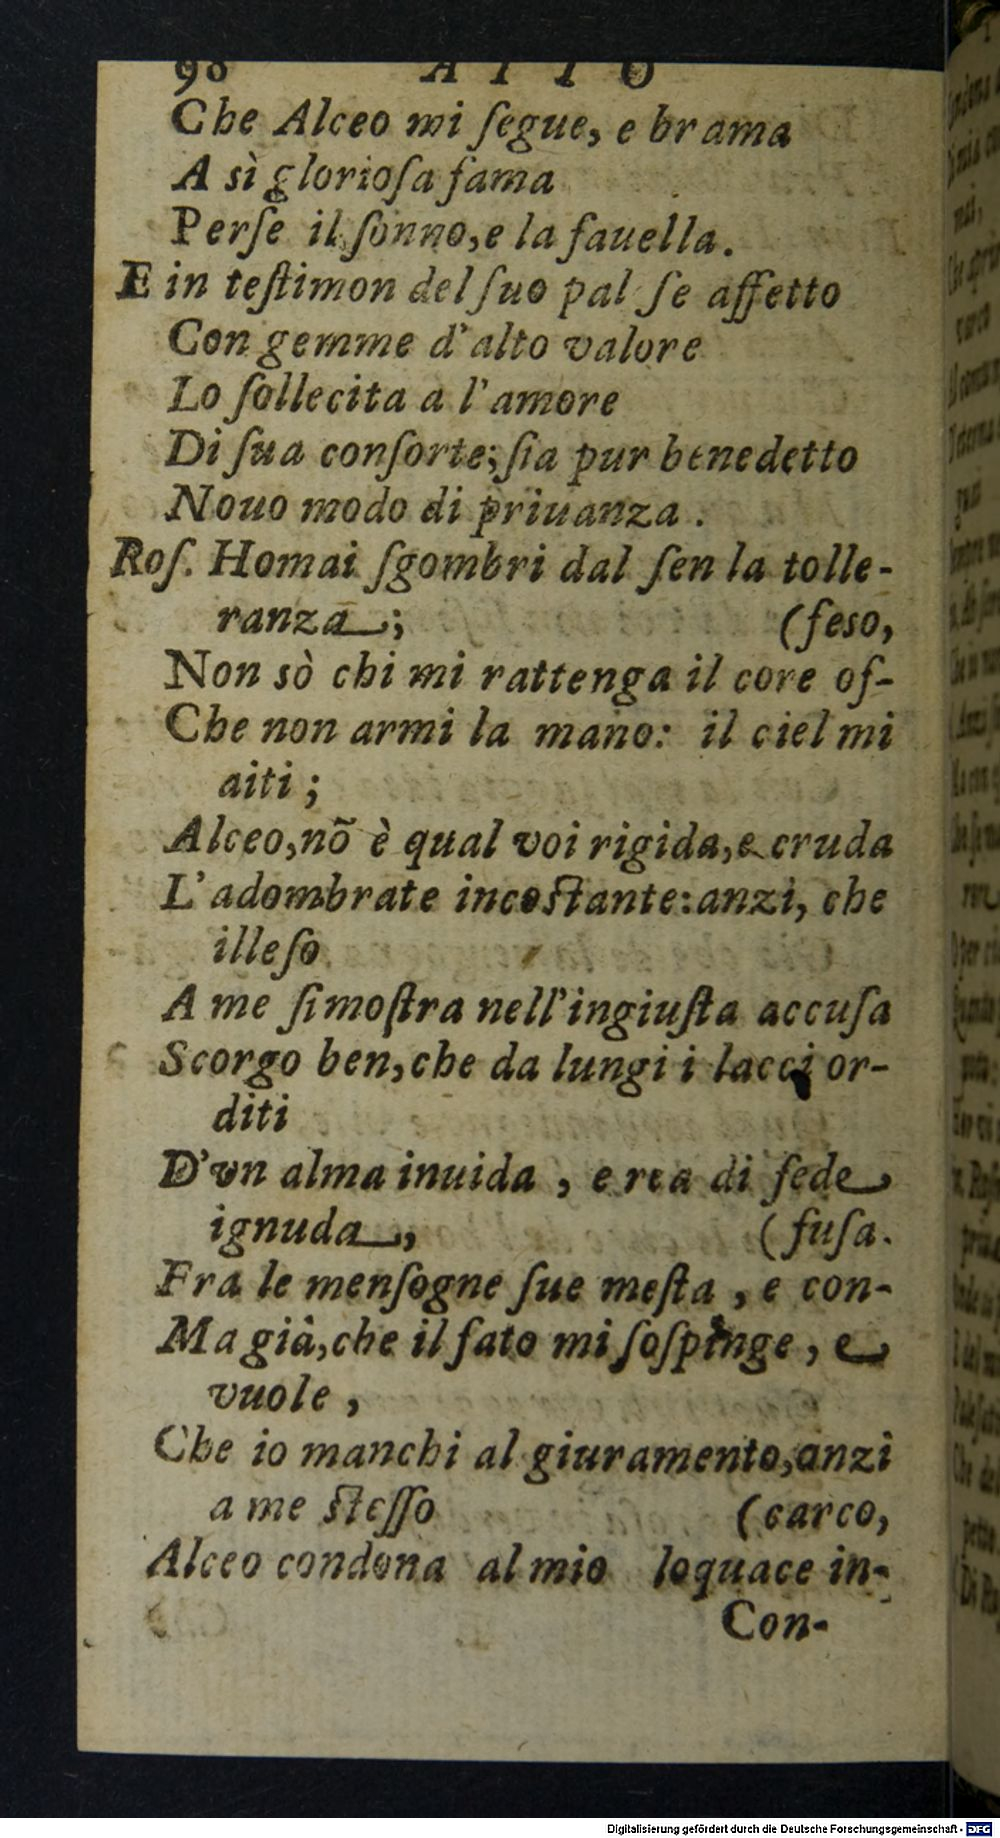 98 ATTO
Che Alceo mi ſegue, e brama
A sì glorioſa fama
Perſe il ſonno, e la fauella.
E in teſtimon del ſuo pal ſe affetto
Con gemme d'alto valore
Lo ſollecita a l'amore
Di ſua conſorte; ſia pur benedetto
Nouo modo di priuanza.
Roſ. Homai ſgombri dal ſen la tolle-
ranza; (feso,
Non sò chi mi rattenga il core of-
Che non armi la mano: il ciel mi
aiti;
Alceo, nõ è qual voi rigida, e cruda
L'adombrate incoſtante: anzi, che
illeſo
A me ſi moſtra nell'ingiuſta accuſa
Scorgo ben, che da lungi i lacci or-
diti
D'vn alma inuida, e rea di fede
ignuda, (fuſa.
Fra le menſogne ſue meſta, e con-
Ma già, che il fato mi ſoſpinge, e
vuole,
Che io manchi al giuramento, anzi
a me ſteſſo (carco,
Alceo condona al mio loquace in-
Con-
Digitalisierung gefördert durch die Deutsche Forschungsgemeinschaft - DFG